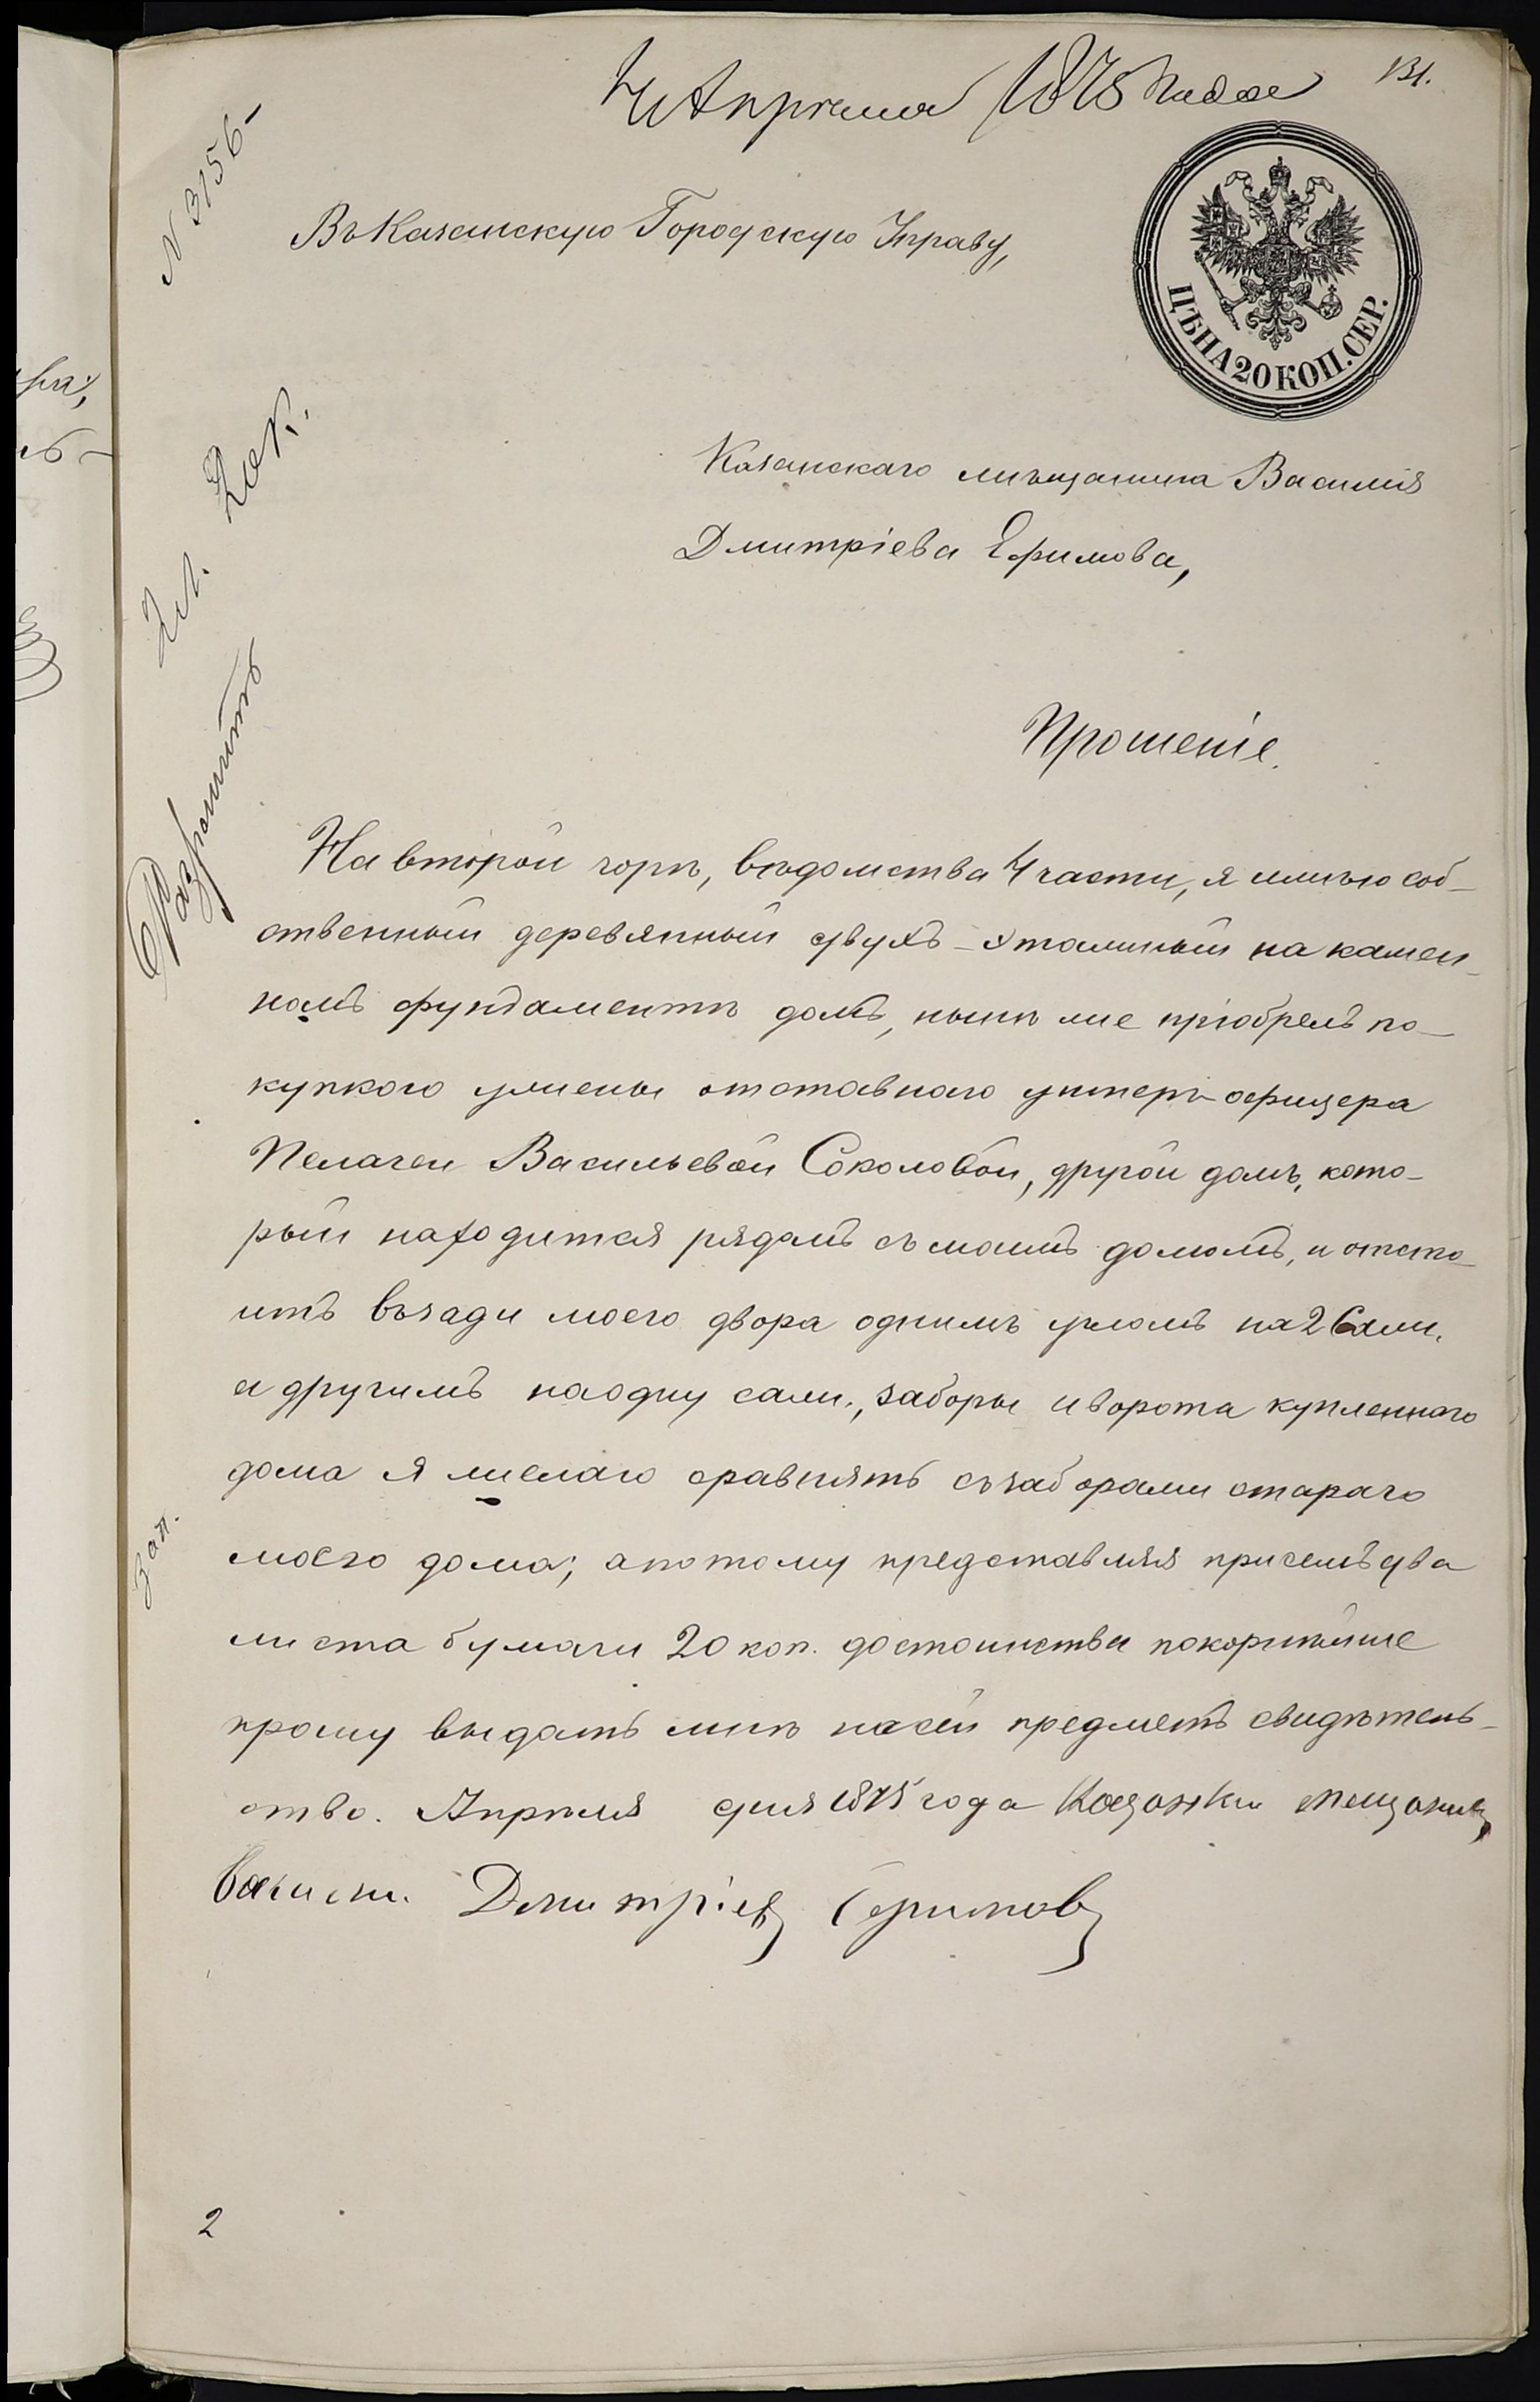 131.
Апреля 1875 года
N 3156
Въ Казанскую Городскую Управу,
ЦѢНА 20 КОП. СЕР.
Казанскаго мѣщанина Василія
Дмитріева Ефимова,
2 л. 20 к.
Прошеніе.
Разрѣшить
На второй горѣ, вѣдомства 4 части, я имѣю соб-
ственный деревянный двухъ-этажный на камен-
номъ фундаментѣ домъ, нынѣ же пріобрелъ по-
купкою у жены отставнаго унтеръ-офицера
Пелагеи Васильевой Соколовой, другой домъ, кото-
рый находится рядомъ съ моимъ домомъ, и отсто-
итъ възади моего двора однимъ угломъ на 2 Саж.
а другимъ на одну саж., заборы и ворота купленнаго
дома я желаю сравнять съ заборами стараго
моего дома; а потому представляя при семъ два
листа бумаги 20 коп. достоинства покорнѣйше
прошу выдать мнѣ на сей предметъ свидѣтель-
ство. Апрѣля дня 1875 года Казански мещанинъ
Василей Дмитріевъ Ефимовъ
Зап.
2